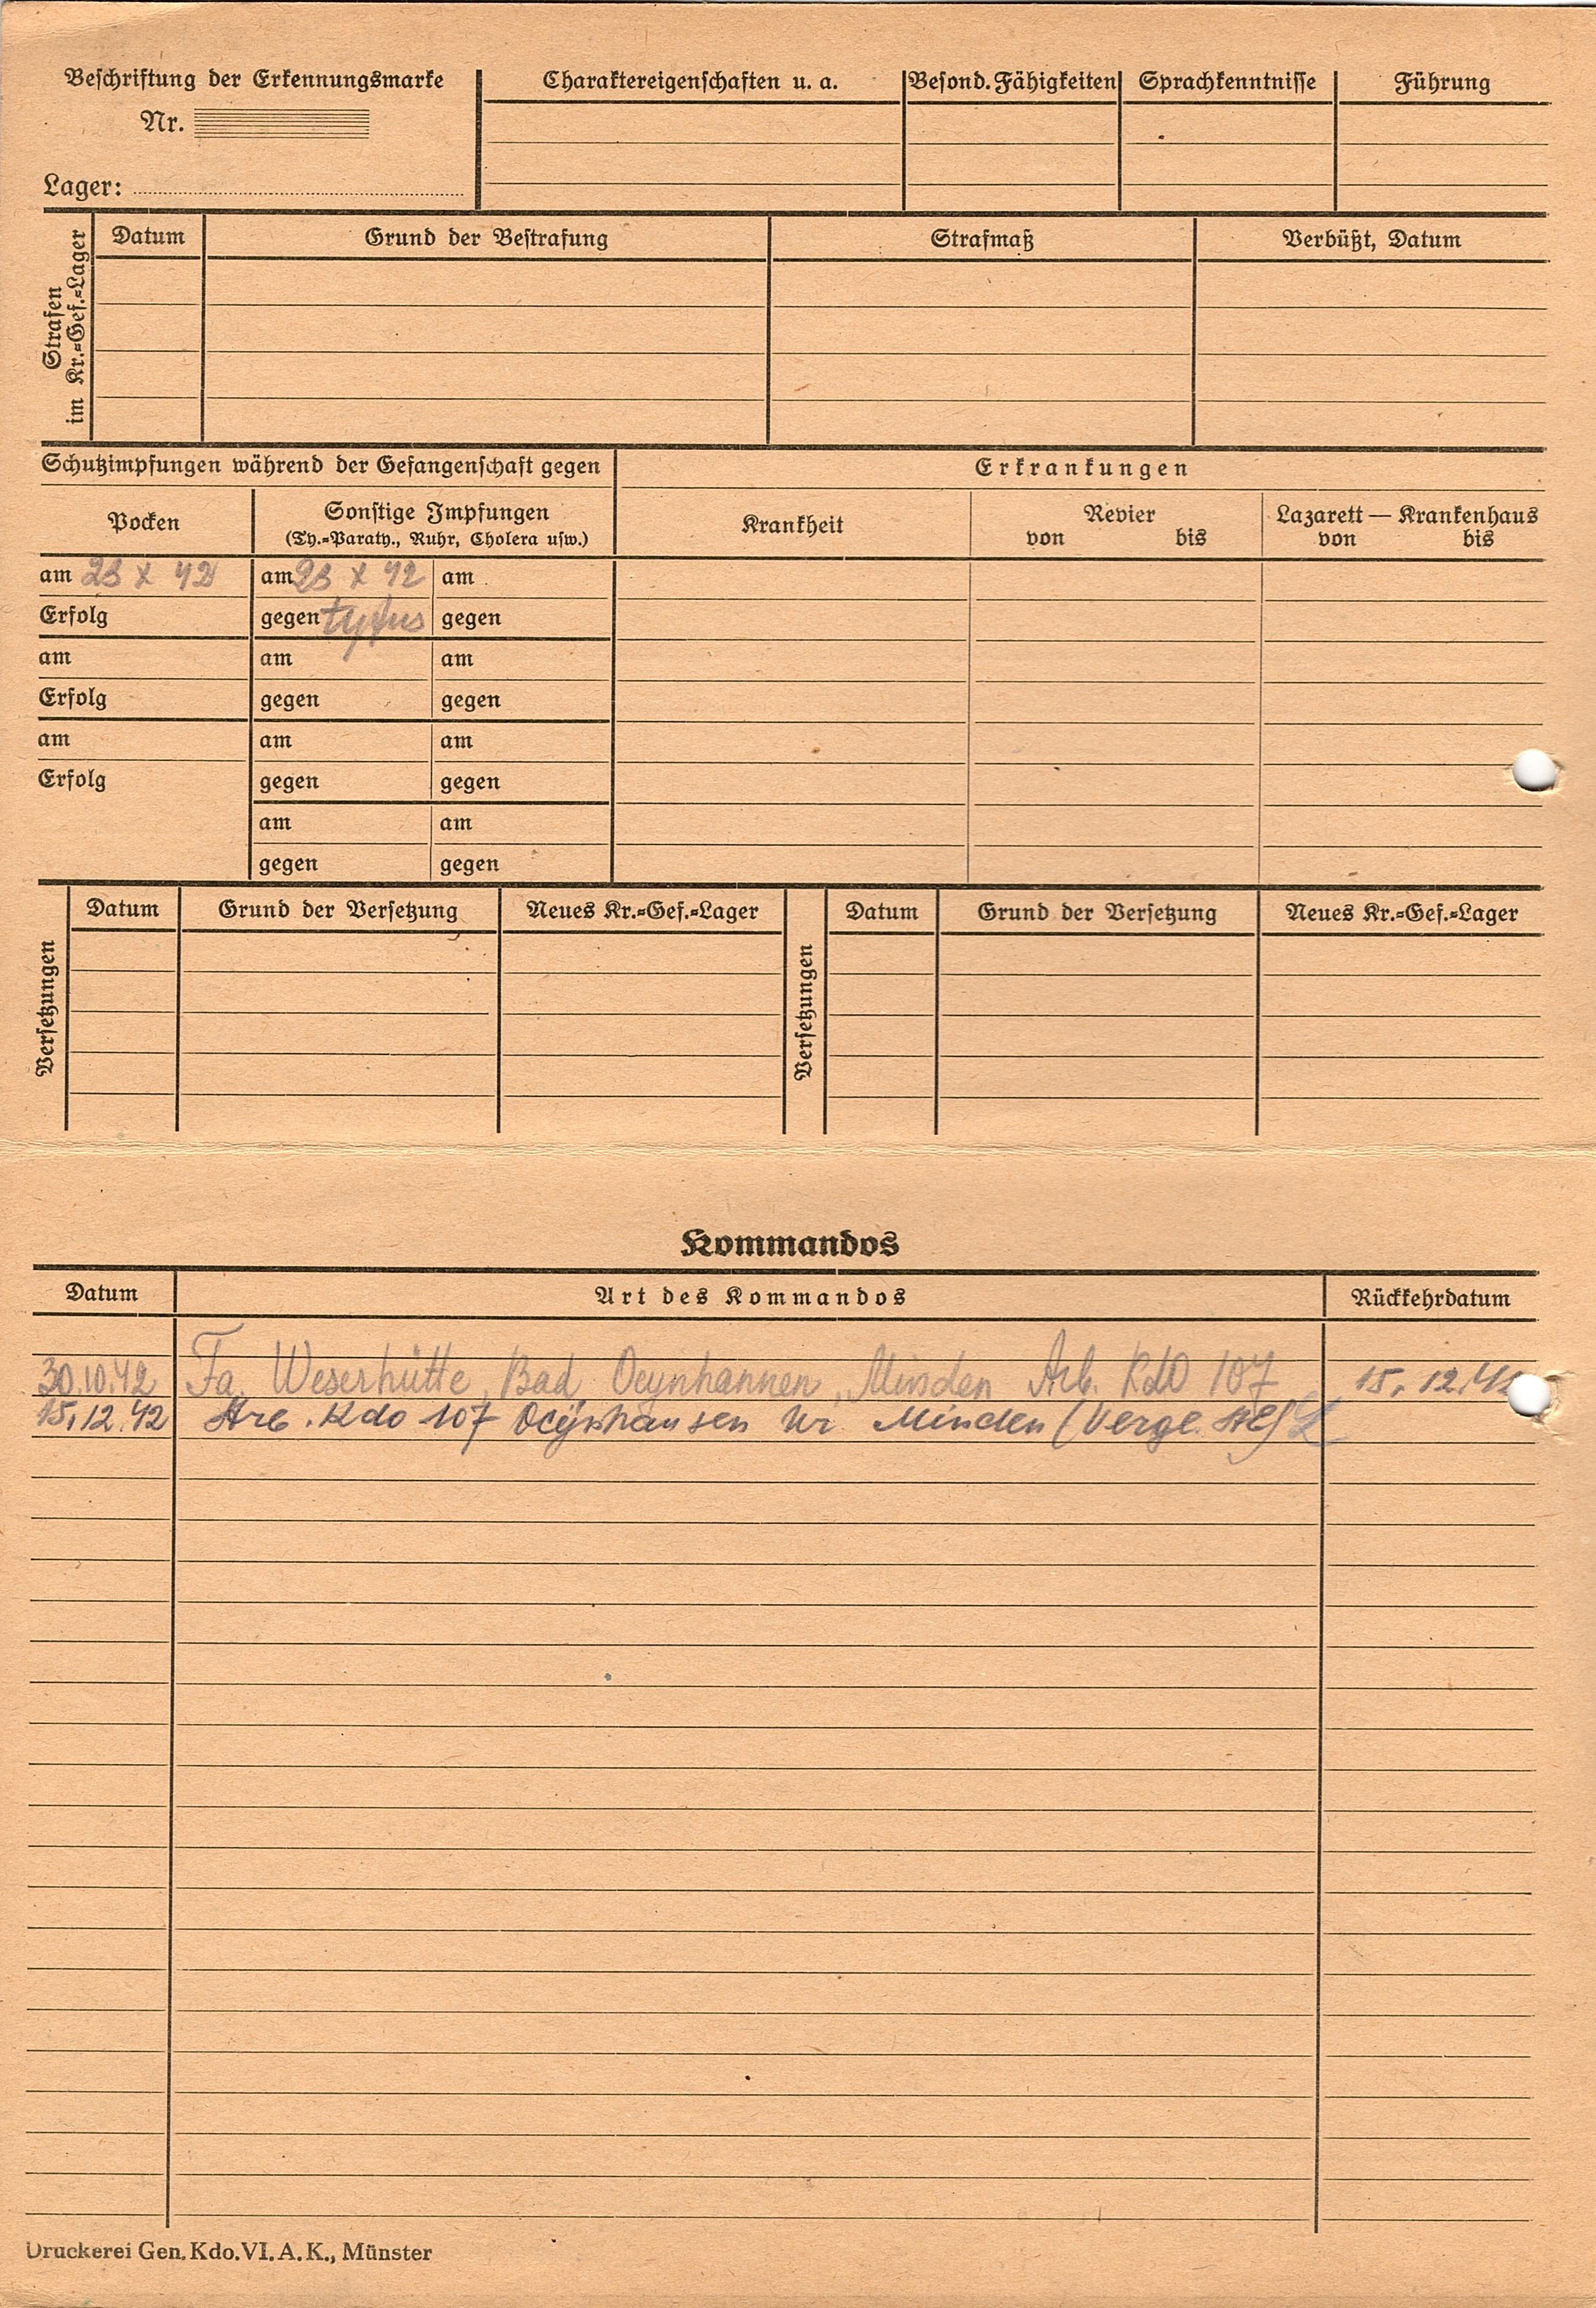 Beschriftung der Erkennungsmarke
Nr.
Lager:
Charaktereigenschaften u. a.
Besond. Fähigkeiten
Sprachkenntnisse
Führung
Strafen
im Kr.=Gef.=Lager
Datum
Grund der Bestrafung
Strafmaß
Verbüßt, Datum
Schutzimpfungen während der Gefangenschaft gegen
Erkrankungen
Pocken
Sonstige Impfungen
(Ty.=Paraty., Ruhr, Cholera usw.)
Krankheit
Revier
von bis
Lazarett — Krankenhaus
von bis
am 23 X 42 am 23 X 42 am
Erfolg gegen tyfus gegen
am am am
Erfolg gegen gegen
am am am
Erfolg gegen gegen
am am
gegen gegen
Versetzungen
Datum Grund der Versetzung Neues Kr.=Gef.=Lager
Versetzungen
Datum Grund der Versetzung Neues Kr.=Gef.=Lager
Kommandos
Datum Art des Kommandos Rückkehrdatum
30.10.42 Fa. Weserhütte, Bad Oeynhannen, Minden Arb. Kdo 107 15.12.42
15.12.42 Arb. Kdo 107 Oeynhausen Kr Minden (Vergl.
Druckerei Gen. Kdo. VI. A. K., Münster